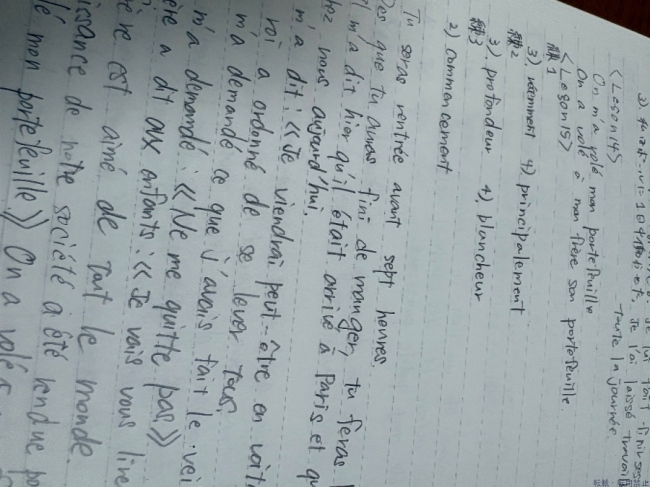 Je lui fait finir ses
Je l'ai laissé travail
toute la journée
<Leson14>
On m'a volé mon portefeuille
On a volé à mon frère son portefeuille
<Leson15>
練1
3) récemment 4) principalement
練2
3) profondeur 4) blancheur
練3
2) commencement
Tu seras rentrée avant sept heures.
Dès que tu auras fini de manger, tu feras
m'a dit hier qu'il était arrivé à Paris et qu
nous aujourd'hui.
m'a dit : «Je viendrai peut-être en voit
roi a ordonné de se lever tous.
m'a demandé ce que j'avais fait le vei
m'a demandé : «Ne me quitte pas.»
ère a dit aux enfants : «Je vais vous lire
ère est aimé de tout le monde.
issance de notre société a été rendue po
lé mon portefeuille» On a volé